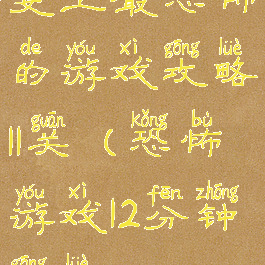 上最恐怖
de yóu xì gōng lüè
的游戏攻略
guān kǒng bù
11关(恐怖
yóu xì fēn zhōng
游戏12分钟
gōng lüè